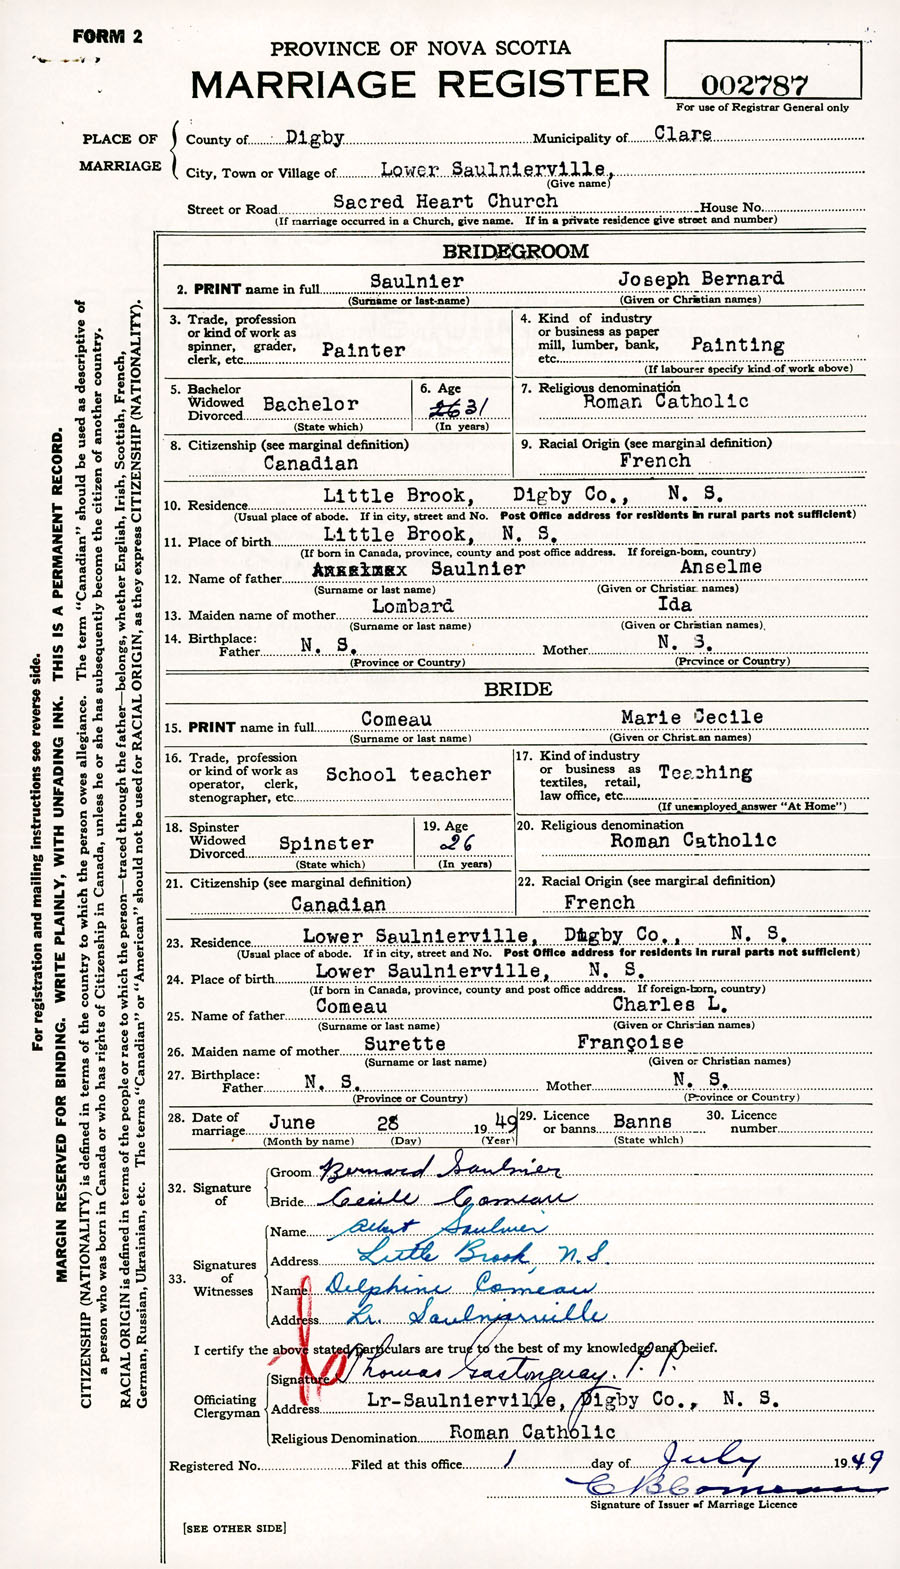 FORM 2
PROVINCE OF NOVA SCOTIA
MARRIAGE REGISTER
002787
For use of Registrar General only
PLACE OF MARRIAGE
County of Digby Municipality of Clare
City, Town or Village of Lower Saulnierville,
(Give name)
Street or Road Sacred Heart Church House No.
(If marriage occurred in a Church, give name. If in a private residence give street and number)
BRIDEGROOM
2. PRINT name in full Saulnier Joseph Bernard
(Surname or last name) (Given or Christian names)
3. Trade, profession
or kind of work as
spinner, grader,
clerk, etc. Painter
4. Kind of industry
or business as paper
mill, lumber, bank,
etc. Painting
(If labourer specify kind of work above)
5. Bachelor
Widowed
Divorced Bachelor
(State which)
6. Age
26 31
(In years)
7. Religious denomination
Roman Catholic
8. Citizenship (see marginal definition)
Canadian
9. Racial Origin (see marginal definition)
French
10. Residence Little Brook, Digby Co., N. S.
(Usual place of abode. If in city, street and No. Post Office address for residents in rural parts not sufficient)
11. Place of birth Little Brook, N. S.
(If born in Canada, province, county and post office address. If foreign-born, country)
12. Name of father Saulnier Anselme
(Surname or last name) (Given or Christian names)
13. Maiden name of mother Lombard Ida
(Surname or last name) (Given or Christian names).
14. Birthplace:
Father N. S. Mother N. S.
(Province or Country) (Province or Country)
BRIDE
15. PRINT name in full Comeau Marie Cecile
(Surname or last name) (Given or Christian names)
16. Trade, profession
or kind of work as
operator, clerk,
stenographer, etc. School teacher
17. Kind of industry
or business as
textiles, retail,
law office, etc. Teaching
(If unemployed answer "At Home")
18. Spinster
Widowed
Divorced Spinster
(State which)
19. Age
26
(In years)
20. Religious denomination
Roman Catholic
21. Citizenship (see marginal definition)
Canadian
22. Racial Origin (see marginal definition)
French
23. Residence Lower Saulnierville, Digby Co., N. S.
(Usual place of abode. If in city, street and No. Post Office address for residents in rural parts not sufficient)
24. Place of birth Lower Saulnierville, N. S.
(If born in Canada, province, county and post office address. If foreign-born, country)
25. Name of father Comeau Charles L.
(Surname or last name) (Given or Christian names)
26. Maiden name of mother Surette Françoise
(Surname or last name) (Given or Christian names)
27. Birthplace:
Father N. S. Mother N. S.
(Province or Country) (Province or Country)
28. Date of
marriage June 28 1949
(Month by name) (Day) (Year)
29. Licence
or banns Banns
(State which)
30. Licence
number
32. Signature of
Groom Bernard Saulnier
Bride Cecile Comeau
33. Signatures of Witnesses
Name Albert Saulnier
Address Little Brook, N.S.
Name Delphine Comeau
Address Lr. Saulnierville
I certify the above stated particulars are true to the best of my knowledge and belief.
Officiating Clergyman
Signature Thomas Gastonguay. P. P.
Address Lr-Saulnierville, Digby Co., N. S.
Religious Denomination Roman Catholic
Registered No. Filed at this office 1 day of July 1949
C B Comeau
Signature of Issuer of Marriage Licence
[SEE OTHER SIDE]
For registration and mailing instructions see reverse side.
MARGIN RESERVED FOR BINDING. WRITE PLAINLY, WITH UNFADING INK. THIS IS A PERMANENT RECORD.
CITIZENSHIP (NATIONALITY) is defined in terms of the country to which the person owes allegiance. The term "Canadian" should be used as descriptive of
a person who was born in Canada or who has rights of Citizenship in Canada, unless he or she has subsequently become the citizen of another country.
RACIAL ORIGIN is defined in terms of the people or race to which the person—traced through the father—belongs, whether English, Irish, Scottish, French,
German, Russian, Ukrainian, etc. The terms "Canadian" or "American" should not be used for RACIAL ORIGIN, as they express CITIZENSHIP (NATIONALITY).